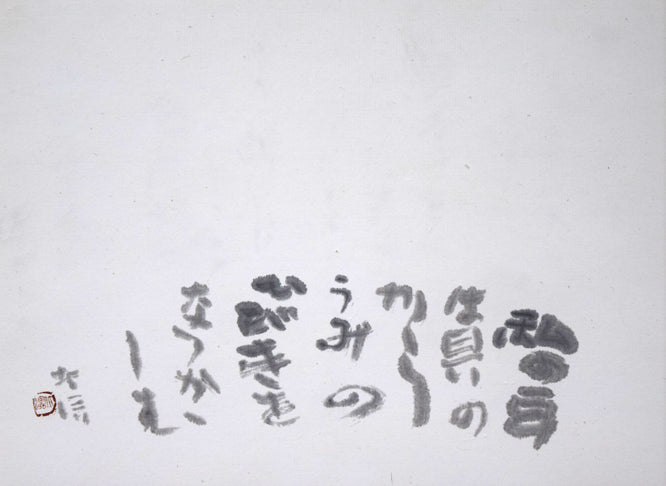 私の耳
は貝の
から
うみの
ひびきを
なつか
しむ
大信